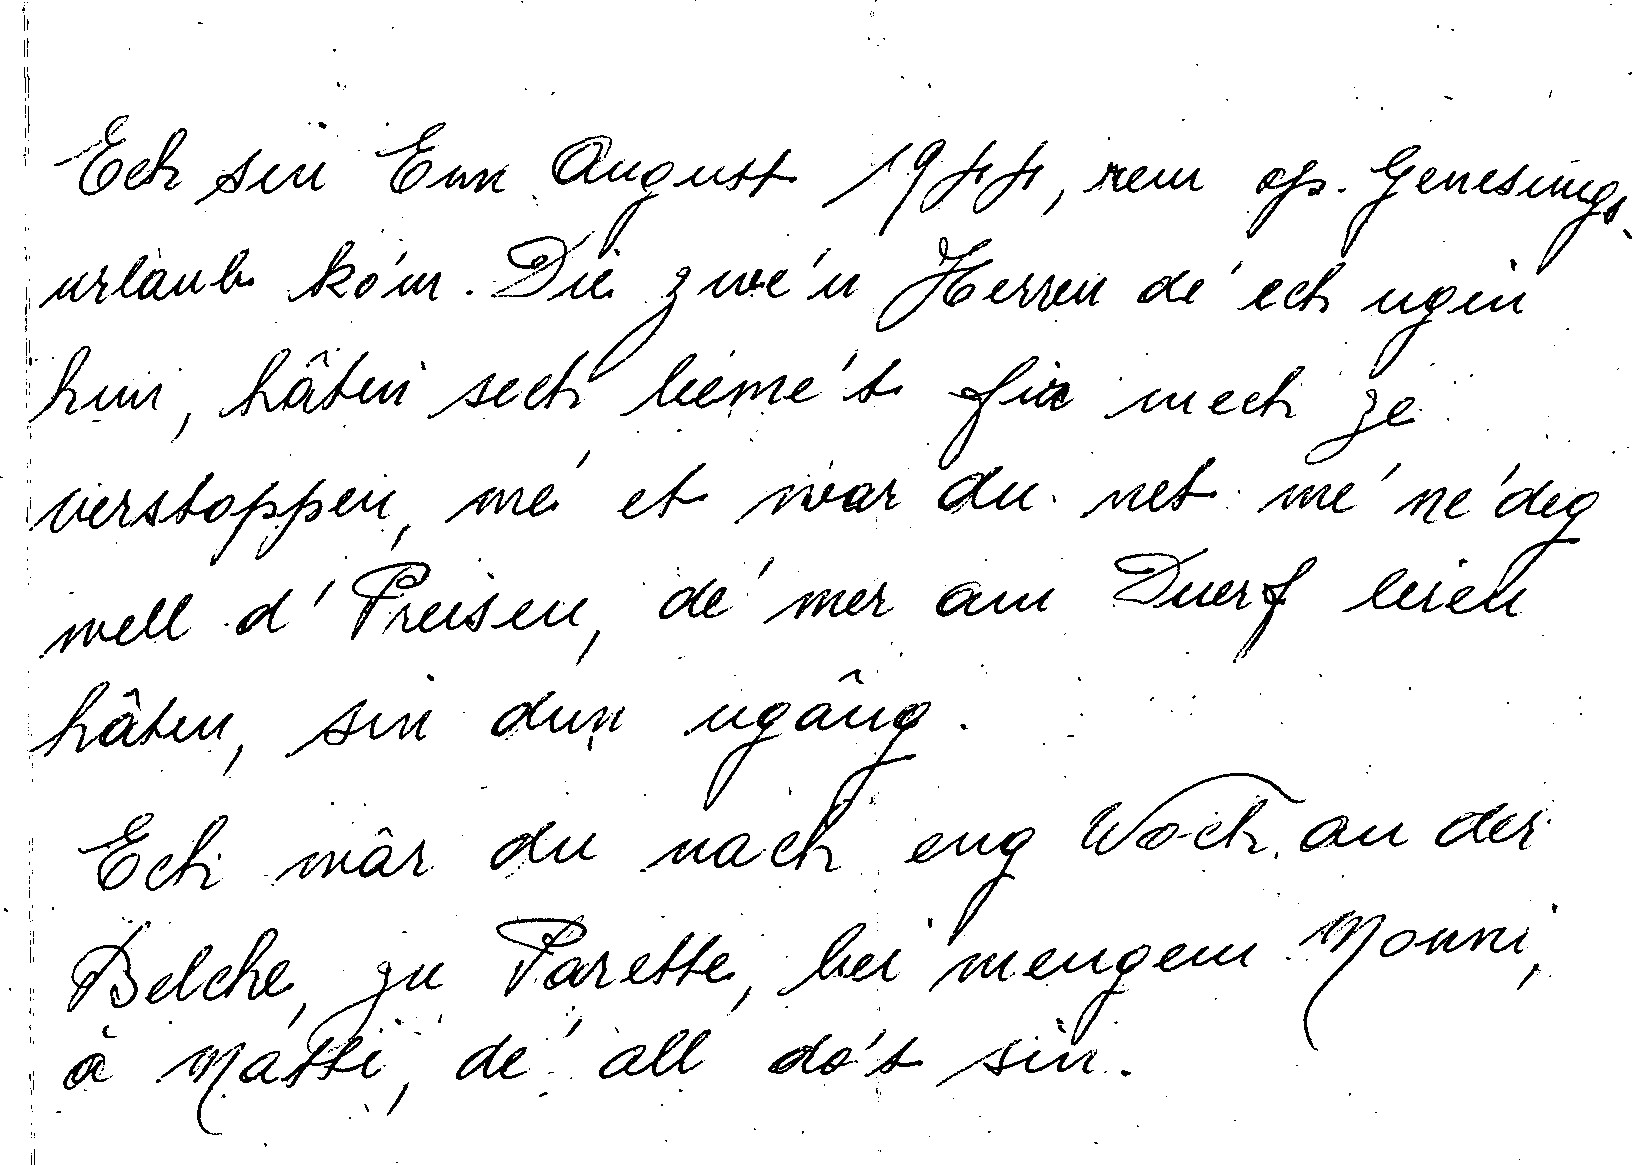 Ech sin Enn August 1944, rem op. Genesungs-
urlaub kóm. Die zwé'n Herren dé' ech ugin
hun, hâten sech bemé't fir mech ze
verstoppen, mé et war du net mé' né'deg
well d' Preisen, dé' mer am Duerf leien
hâten, sin dun ugâng.
Ech wâr du nach eng Woch an der
Belche, zu Parette, bei mengem Monni,
à Matti, dé' all do't sin.